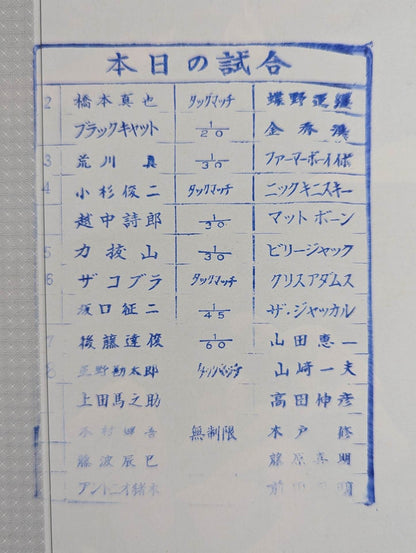 本日の試合
2 橋本真也 タッグマッチ 蝶野正洋
ブラックキャット 1/20 金秀漢
3 荒川真 1/30 ファーマーボーイイポ
4 小杉俊二 タッグマッチ ニックキニスキー
越中詩郎 1/30 マットボーン
5 力抜山 1/30 ビリージャック
6 ザコブラ タッグマッチ クリスアダムス
坂口征二 1/45 ザ・ジャッカル
7 後藤達俊 1/60 山田恵一
8 星野勘太郎 タッグマッチ 山崎一夫
上田馬之助 高田伸彦
木村健吾 無制限 木戸修
藤波辰巳 藤原喜明
アントニオ猪木 前田日明